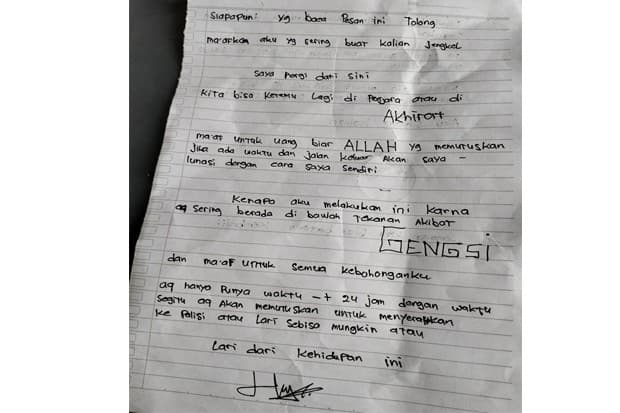 Siapapun yg baca Pesan ini Tolong
ma'afkan aku yg sering buat kalian Jengkel
saya Pergi dari sini
KiTa bisa Ketemu Lagi di Penjara atau di
Akhirat
ma'af untuk uang biar ALLAH yg memutuskan
Jika ada waktu dan Jalan Keluar Akan saya -
lunasi dengan cara saya Sendiri
Kenapa aku melakukan ini Karna
aq Sering berada di bawah Tekanan Akibat
GENGSI
dan ma'af untuk semua kebohonganku
aq hanya Punya waktu -+ 24 jam dengan waktu
Segitu aq Akan memutuskan untuk menyerahkan
Ke Polisi atau Lari Sebisa mungkin atau
Lari dari kehidupan ini